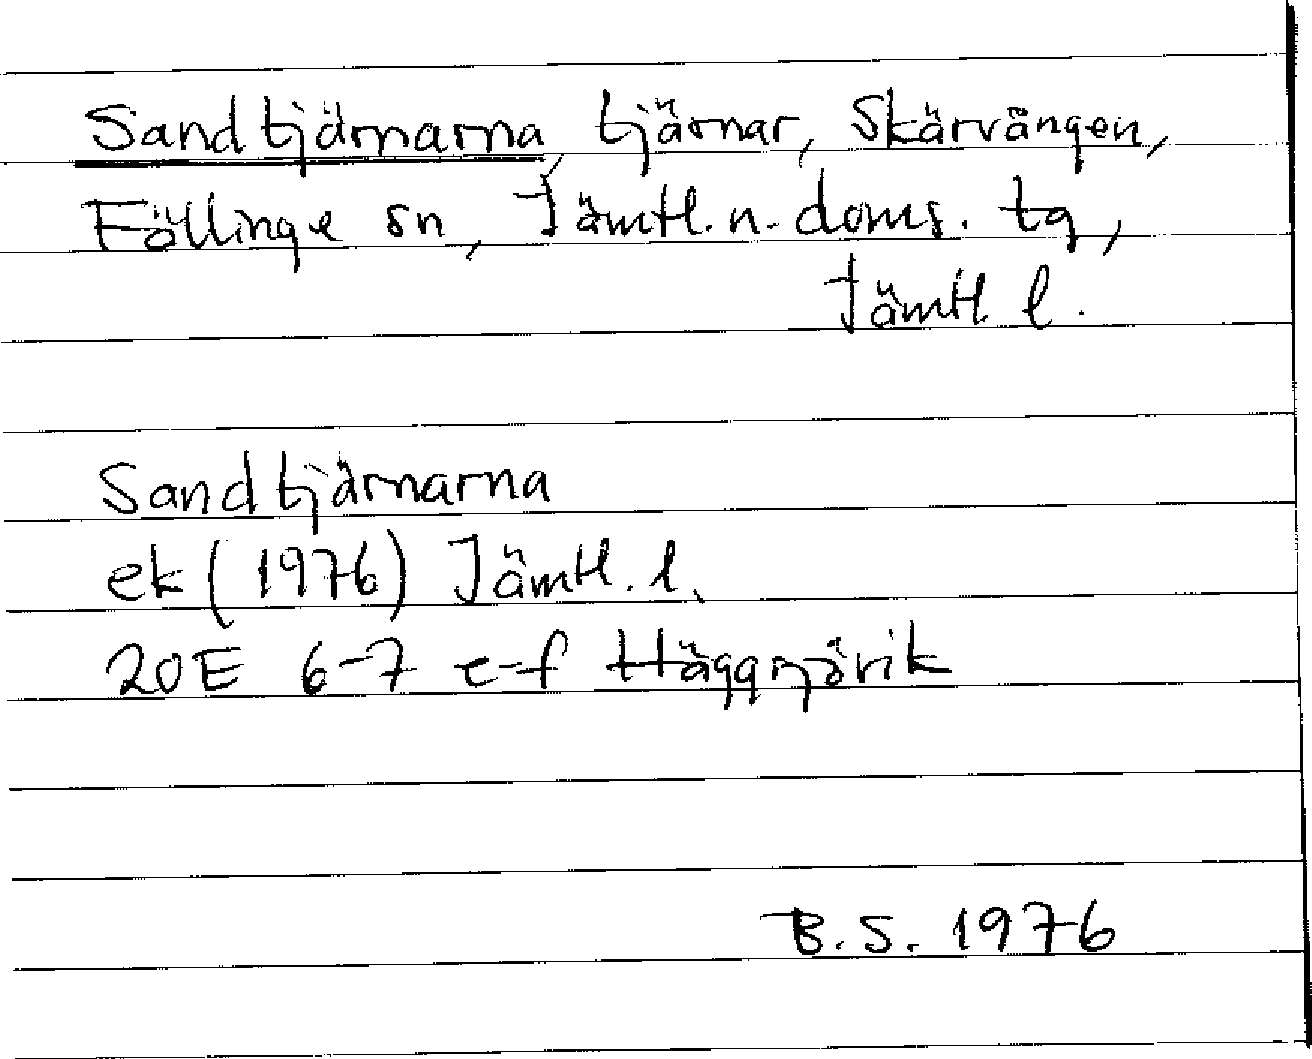 Sandtjärnarna, tjärnar, Skärvången,
Föllinge sn, Jämtl. n. doms. tg,
Jämtl. l.
Sandtjärnarna
ek (1976) Jämtl. l.
20E 6-7 e-f Häggsjövik
B.S. 1976